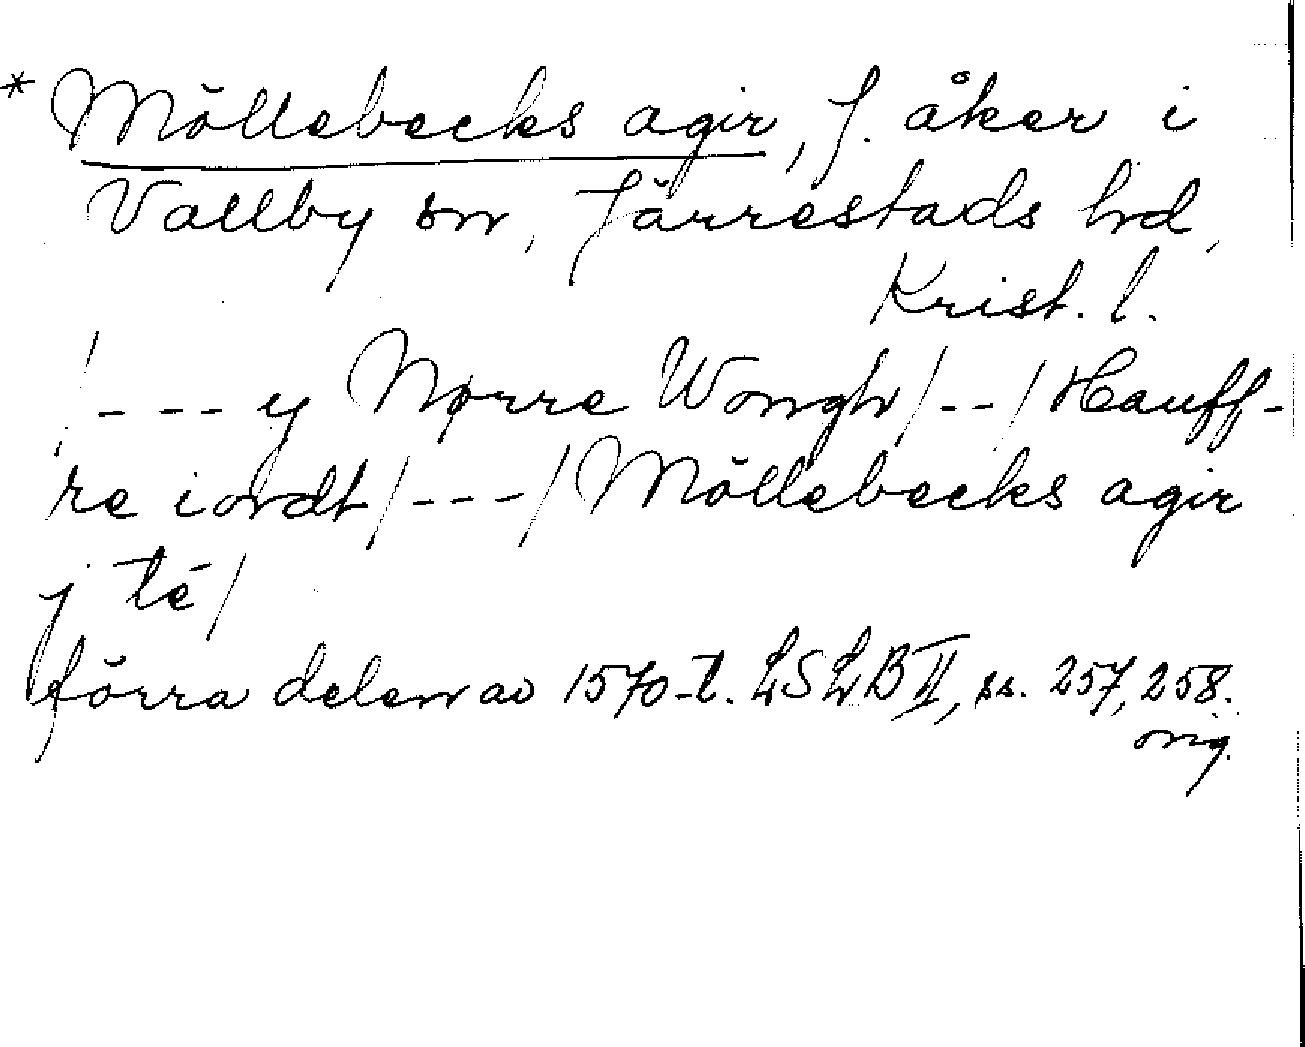 * Möllebecks agir, f. åker i
Vallby sn, Järrestads hrd,
Krist. l.
/--- y Nørre Wongh/--/Hauff-
re iordt/---/Möllebecks agir
j té/
förra delen av 1570-t. LSLB II, ss. 257, 258.
orig.